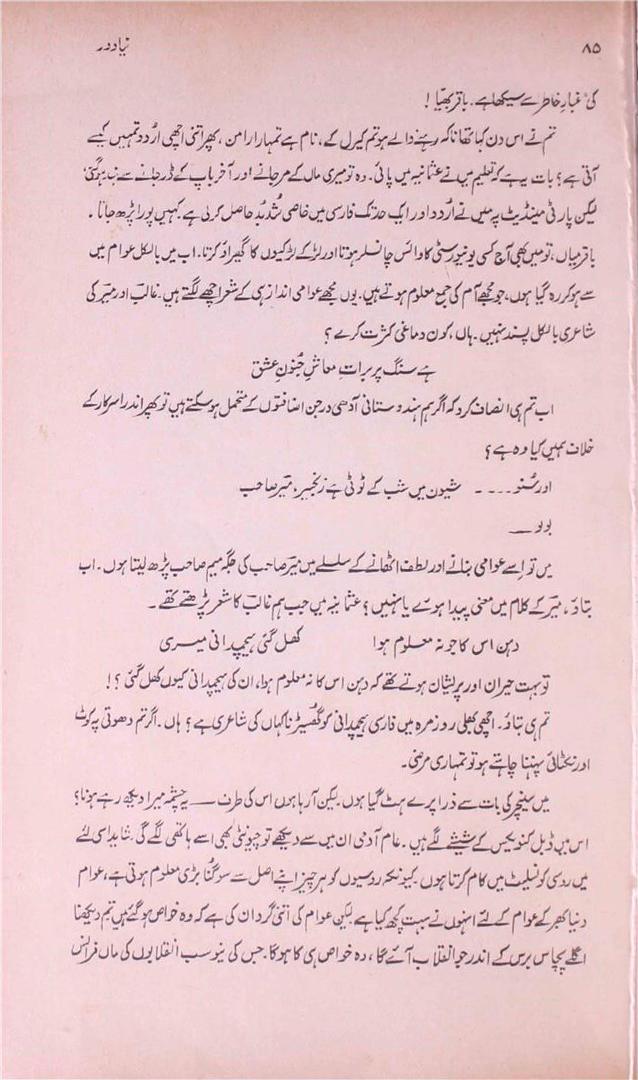 ۸۵ نیا دور
کی غبارِ خاطر سے سیکھا ہے۔ باقر بھیّا!
تم نے اس دن کہا تھا نا کہ رہنے والے ہو تم کیرل کے، نام ہے تمہارا رامن، پھر اتنی اچھی اُردو تمہیں کیسے
آتی ہے؟ بات یہ ہے کہ تعلیم میں نے عثمانیہ میں پائی۔ وہ تو میری ماں کے مر جانے اور آخر باپ کے ڈر جانے سے بند ہو گئی
لیکن پارٹی مینڈیٹ پہ میں نے اُردو اور ایک حد تک فارسی میں خاصی شُد بُد حاصل کرلی ہے۔ کہیں پورا پڑھ جاتا۔
باقر میاں، تو میں بھی آج کسی یونیورسٹی کا وائس چانسلر ہوتا اور لڑکے لڑکیوں کا گھیراؤ کرتا۔ اب میں بالکل عوام میں
سے ہو کر رہ گیا ہوں، جو مجھے آم کی جمع معلوم ہوتے ہیں۔ یوں مجھے عوامی انداز ہی کے شعر اچھے لگتے ہیں۔ غالبؔ اور میرؔ کی
شاعری بالکل پسند نہیں۔ ہاں، کون دماغی کثرت کرے؟
ہے سنگ پر براتِ معاشِ جُنونِ عشق
اب تم ہی انصاف کرو کہ اگر ہم ہندوستانی آدھی درجن اضافتوں کے متحمل ہو سکتے ہیں تو پھر اندرا سرکار کے
خلاف ہمیں کیا وہ ہے؟
اور سُنو۔۔۔۔ شیون میں شب کے ٹوٹی ہے زنجیر، میرؔ صاحب
بولو ــــ
میں تو اِسے عوامی بنانے اور لطف اٹھانے کے سلسلے میں میرؔ صاحب کی جگہ میم صاحب پڑھ لیتا ہوں۔ اب
بتاؤ، میرؔ کے کلام میں معنی پیدا ہوئے یا نہیں؟ عثمانیہ میں جب ہم غالبؔ کا شعر پڑھتے تھے۔
دہن اس کا جو نہ معلوم ہوا کھل گئی ہیچمدانی میری
تو بہت حیران اور پریشان ہوتے تھے کہ دہن اس کا نہ معلوم ہوا، ان کی ہیچمدانی کیوں کھل گئی؟!
تم ہی بتاؤ۔ اچھی بھلی روزمرہ میں فارسی ہیچمدانی کو گھسیڑنا کہاں کی شاعری ہے؟ ہاں۔ اگر تم دھوتی پہ کوٹ
اور نکٹائی پہننا چاہتے ہو تو تمہاری مرضی۔
میں سنیچر کی بات سے ذرا پرے ہٹ گیا ہوں۔ لیکن آ رہا ہوں اس کی طرف ــــ یہ چشمہ میرا دیکھ رہے ہو نا؟
اس میں ڈبل کنویکس کے شیشے لگے ہیں۔ عام آدمی ان میں سے دیکھے تو چیونٹی بھی اسے ہاتھی لگے گی۔ شاید اسی لئے
میں روسی کونسلیٹ میں کام کرتا ہوں۔ کیونکہ روسیوں کو ہر چیز اپنے اصل سے سو گُنا بڑی معلوم ہوتی ہے، عوام
دنیا بھر کے عوام کے لئے انہوں نے بہت کچھ کیا ہے لیکن عوام کی اتنی گردان کی ہے کہ وہ خواص ہو گئے ہیں تم دیکھنا
اگلے پچاس برس کے اندر جو انقلاب آئے گا، وہ خواص ہی کا ہو گا۔ جس کی نیو سب انقلابوں کی ماں فرانس